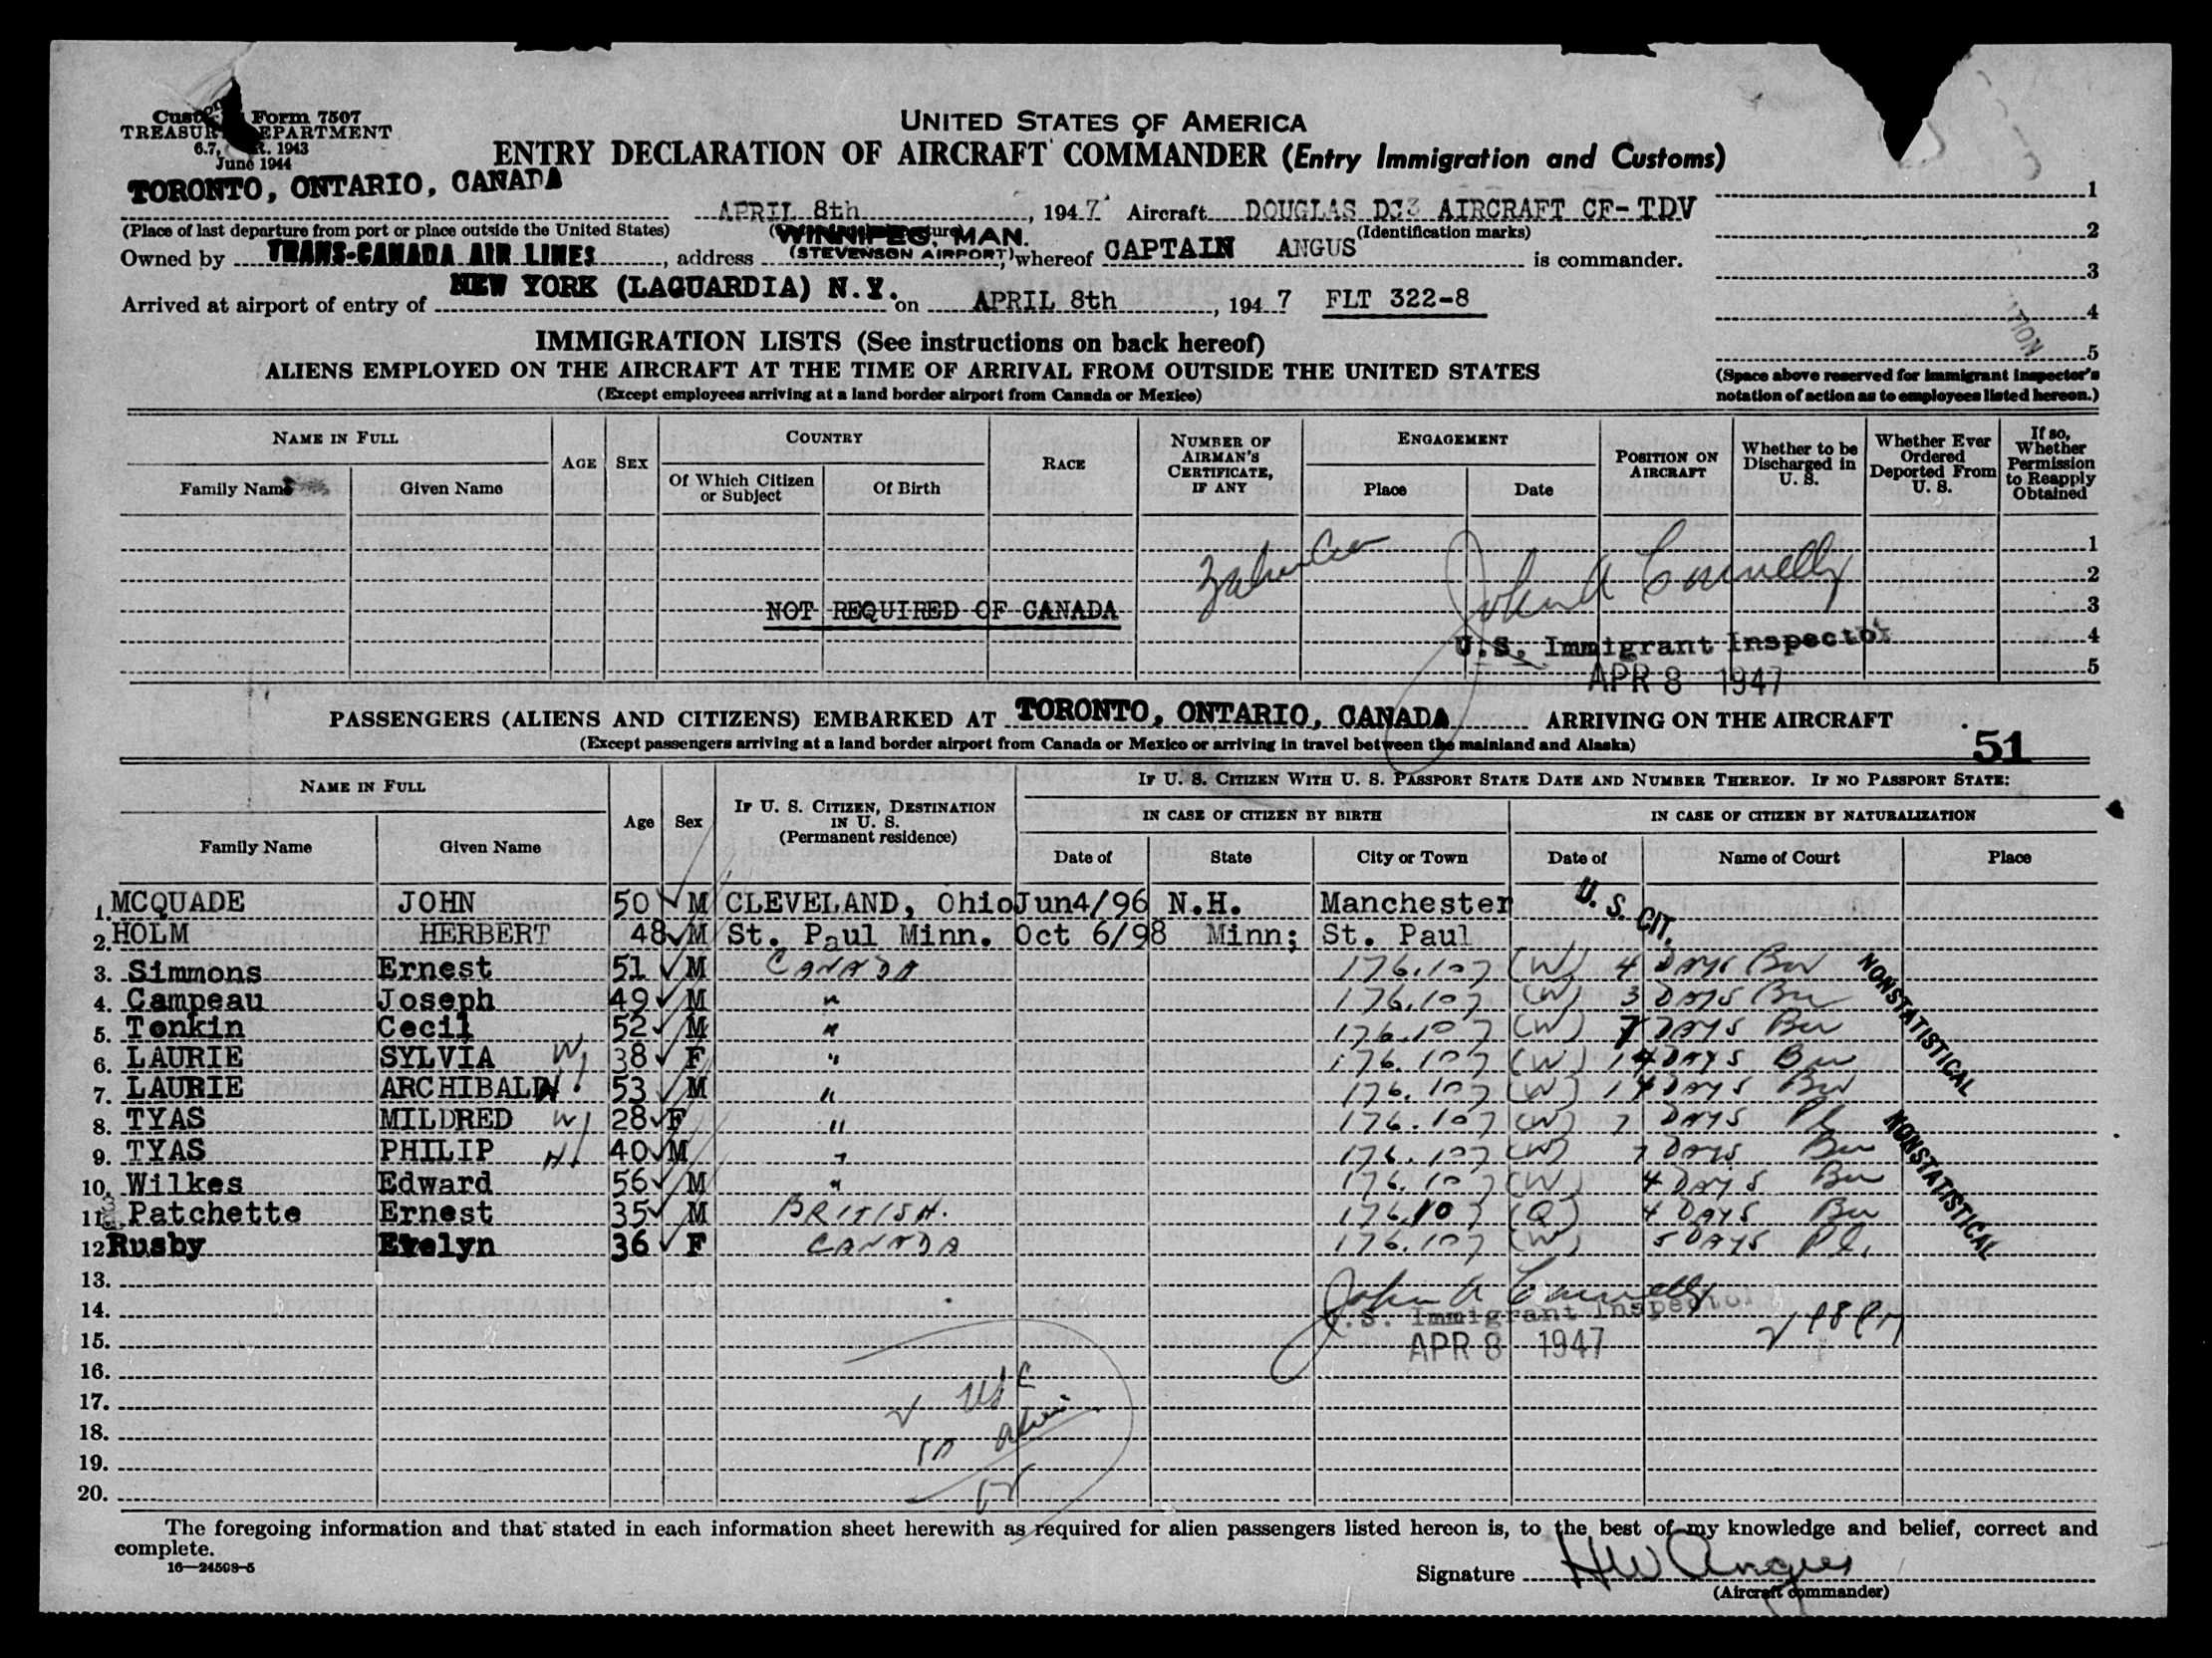 Form 7507
UNITED STATES OF AMERICA
TREASURY DEPARTMENT
1943
June 1944
ENTRY DECLARATION OF AIRCRAFT COMMANDER (Entry Immigration and Customs)
TORONTO, ONTARIO, CANADA
APRIL 8th, 1947 Aircraft DOUGLAS DC3 AIRCRAFT CF-TDV
(Place of last departure from port or place outside the United States) (Identification marks)
WINNIPEG, MAN.
Owned by TRANS-CANADA AIR LINES, address (STEVENSON AIRPORT) whereof CAPTAIN ANGUS is commander.
Arrived at airport of entry of NEW YORK (LAGUARDIA) N.Y. on APRIL 8th, 1947 FLT 322-8
1
2
3
4
5
IMMIGRATION LISTS (See instructions on back hereof)
ALIENS EMPLOYED ON THE AIRCRAFT AT THE TIME OF ARRIVAL FROM OUTSIDE THE UNITED STATES
(Except employees arriving at a land border airport from Canada or Mexico)
(Space above reserved for immigrant inspector's
notation of action as to employees listed hereon.)
NAME IN FULL AGE SEX COUNTRY RACE NUMBER OF AIRMAN'S CERTIFICATE, IF ANY ENGAGEMENT POSITION ON AIRCRAFT Whether to be Discharged in U. S. Whether Ever Ordered Deported From U. S. If so, Whether Permission to Reapply Obtained
Family Name Given Name Of Which Citizen or Subject Of Birth Place Date
1
2
NOT REQUIRED OF CANADA 3
John A Connelly
U.S. Immigrant Inspector 4
APR 8 1947 5
PASSENGERS (ALIENS AND CITIZENS) EMBARKED AT TORONTO, ONTARIO, CANADA ARRIVING ON THE AIRCRAFT
(Except passengers arriving at a land border airport from Canada or Mexico or arriving in travel between the mainland and Alaska)
51
NAME IN FULL Age Sex IF U. S. CITIZEN, DESTINATION IN U. S. (Permanent residence) IF U. S. CITIZEN WITH U. S. PASSPORT STATE DATE AND NUMBER THEREOF. IF NO PASSPORT STATE:
IN CASE OF CITIZEN BY BIRTH IN CASE OF CITIZEN BY NATURALIZATION
Family Name Given Name Date of State City or Town Date of Name of Court Place
1. MCQUADE JOHN 50 M CLEVELAND, Ohio Jun4/96 N.H. Manchester U. S. CIT.
2. HOLM HERBERT 48 M St. Paul Minn. Oct 6/98 Minn; St. Paul
3. Simmons Ernest 51 M CANADA 176.107 (W) 4 DAYS Bu
4. Campeau Joseph 49 M " 176.107 (W) 3 DAYS Bu
5. Tonkin Cecil 52 M " 176.107 (W) 7 DAYS Bu
6. LAURIE SYLVIA W/ 38 F " 176.107 (W) 14 DAYS Bu
7. LAURIE ARCHIBALD 53 M " 176.107 (W) 14 DAYS Bu
8. TYAS MILDRED W/ 28 F " 176.107 (W) 7 DAYS Pl
9. TYAS PHILIP H/ 40 M " 176.107 (W) 7 DAYS Bu
10. Wilkes Edward 56 M " 176.107 (W) 4 DAYS Bu
11. Patchette Ernest 35 M BRITISH. 176.107 (Q) 4 DAYS Bu
12 Rusby Evelyn 36 F CANADA 176.107 (W) 5 DAYS Pl.
NONSTATISTICAL
NONSTATISTICAL
13.
John A Connelly
14. U.S. Immigrant Inspector
15. APR 8 1947
16. USC
17.
18. 10 alien
19.
20. 12
The foregoing information and that stated in each information sheet herewith as required for alien passengers listed hereon is, to the best of my knowledge and belief, correct and
complete.
16—24598-5
Signature HW Angus
(Aircraft commander)